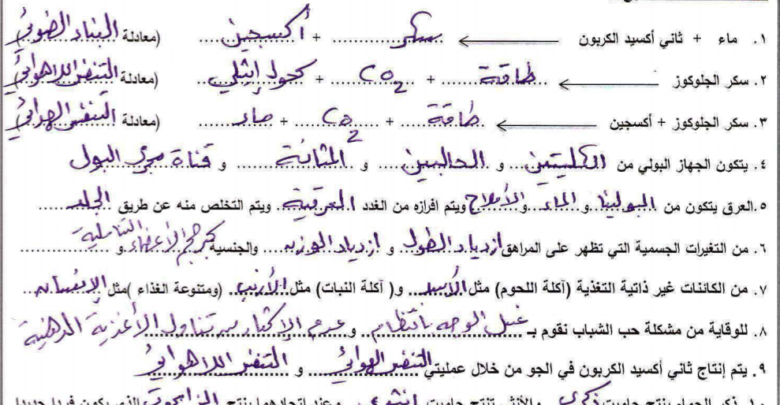 ١. ماء + ثاني أكسيد الكربون ← سكر + أكسجين (معادلة البناء الضوئي)
٢. سكر الجلوكوز ← طاقة + CO2 + كحول إيثلي (معادلة التنفس اللاهوائي)
٣. سكر الجلوكوز + أكسجين ← طاقة + CO2 + ماء (معادلة التنفس الهوائي)
٤. يتكون الجهاز البولي من الكليتين و الحالبين و المثانة و قناة مجرى البول
٥.العرق يتكون من البولينا و الماء والأملاح ويتم افرازه من الغدد العرقية ويتم التخلص منه عن طريق الجلد
٦. من التغيرات الجسمية التي تظهر على المراهق ازدياد الطول و ازدياد الوزن والجنسية كبر حجم الأعضاء التناسلية و
٧. من الكائنات غير ذاتية التغذية (آكلة اللحوم) مثل الأسد و( آكلة النبات) مثل الأرنب (ومتنوعة الغذاء )مثل الإنسان
٨. للوقاية من مشكلة حب الشباب نقوم بـ غسل الوجه بانتظام و عدم الإكثار من تناول الأغذية الدهنية
٩. يتم إنتاج ثاني أكسيد الكربون في الجو من خلال عمليتي التنفس الهوائي و التنفس اللاهوائي